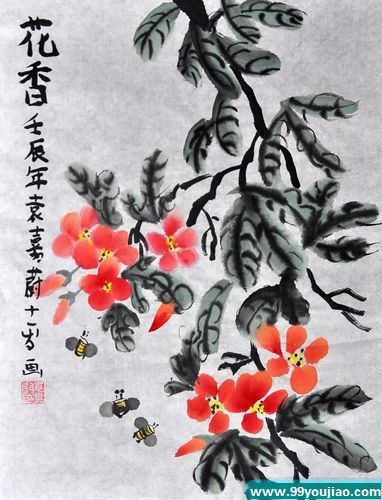 花香
壬辰年袁嘉蔚十一岁画
www.99youjiao.com